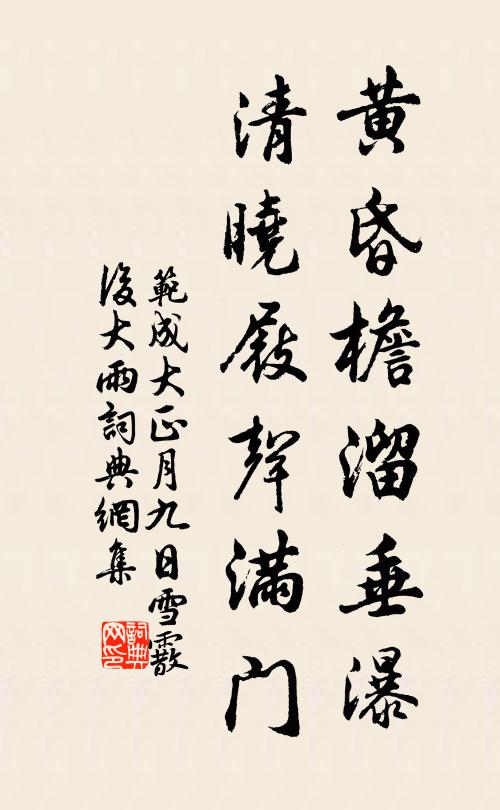 黄昏檐溜垂瀑
清曉屐聲满門
範成大正月九日雪霰
後大雨詞典網集
詞典网印